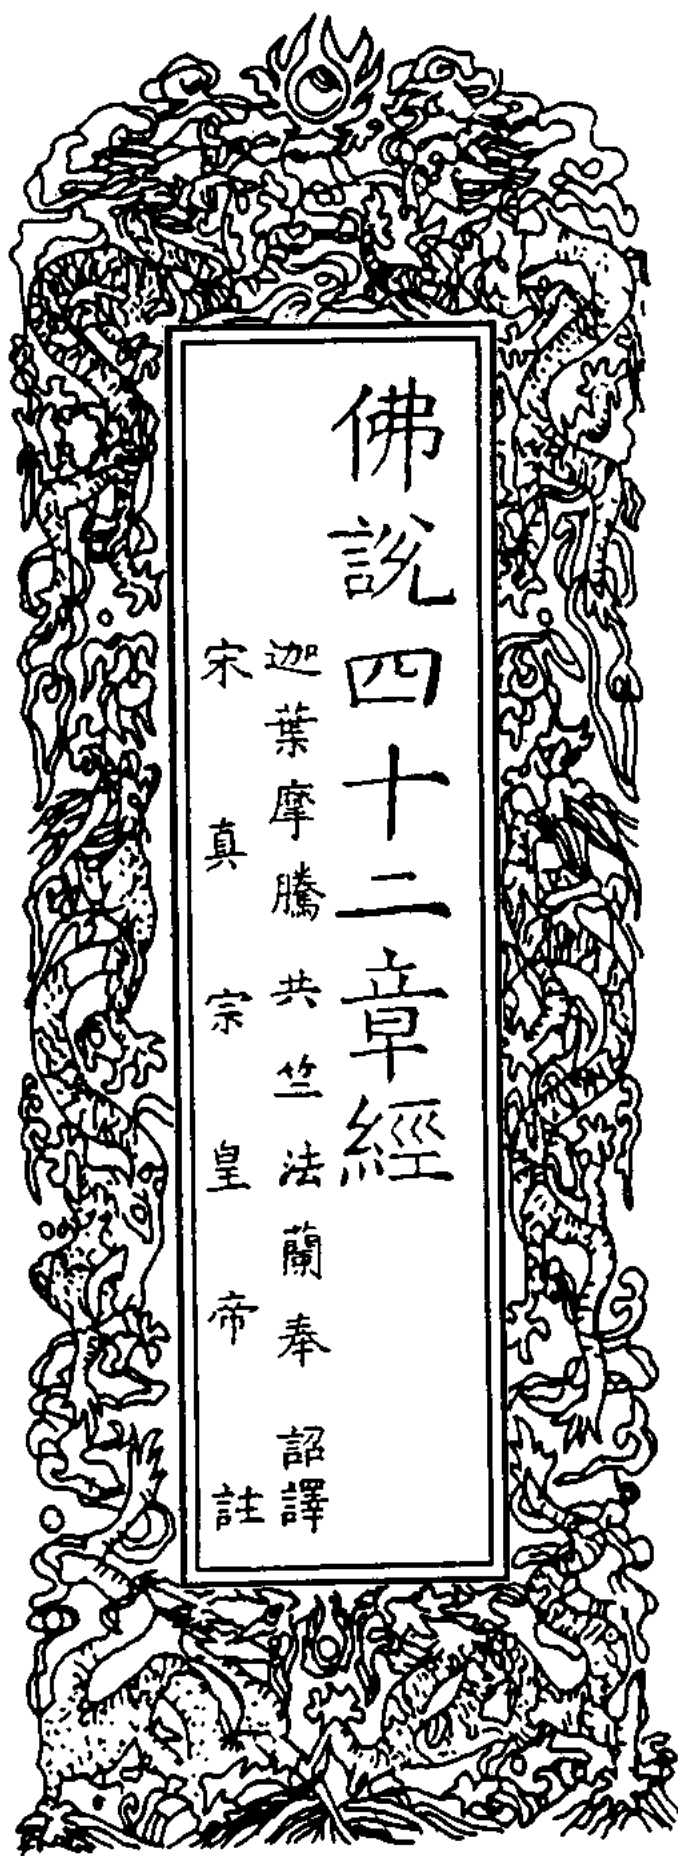 佛說四十二章經
迦葉摩騰共竺法蘭奉詔譯
宋真宗皇帝註